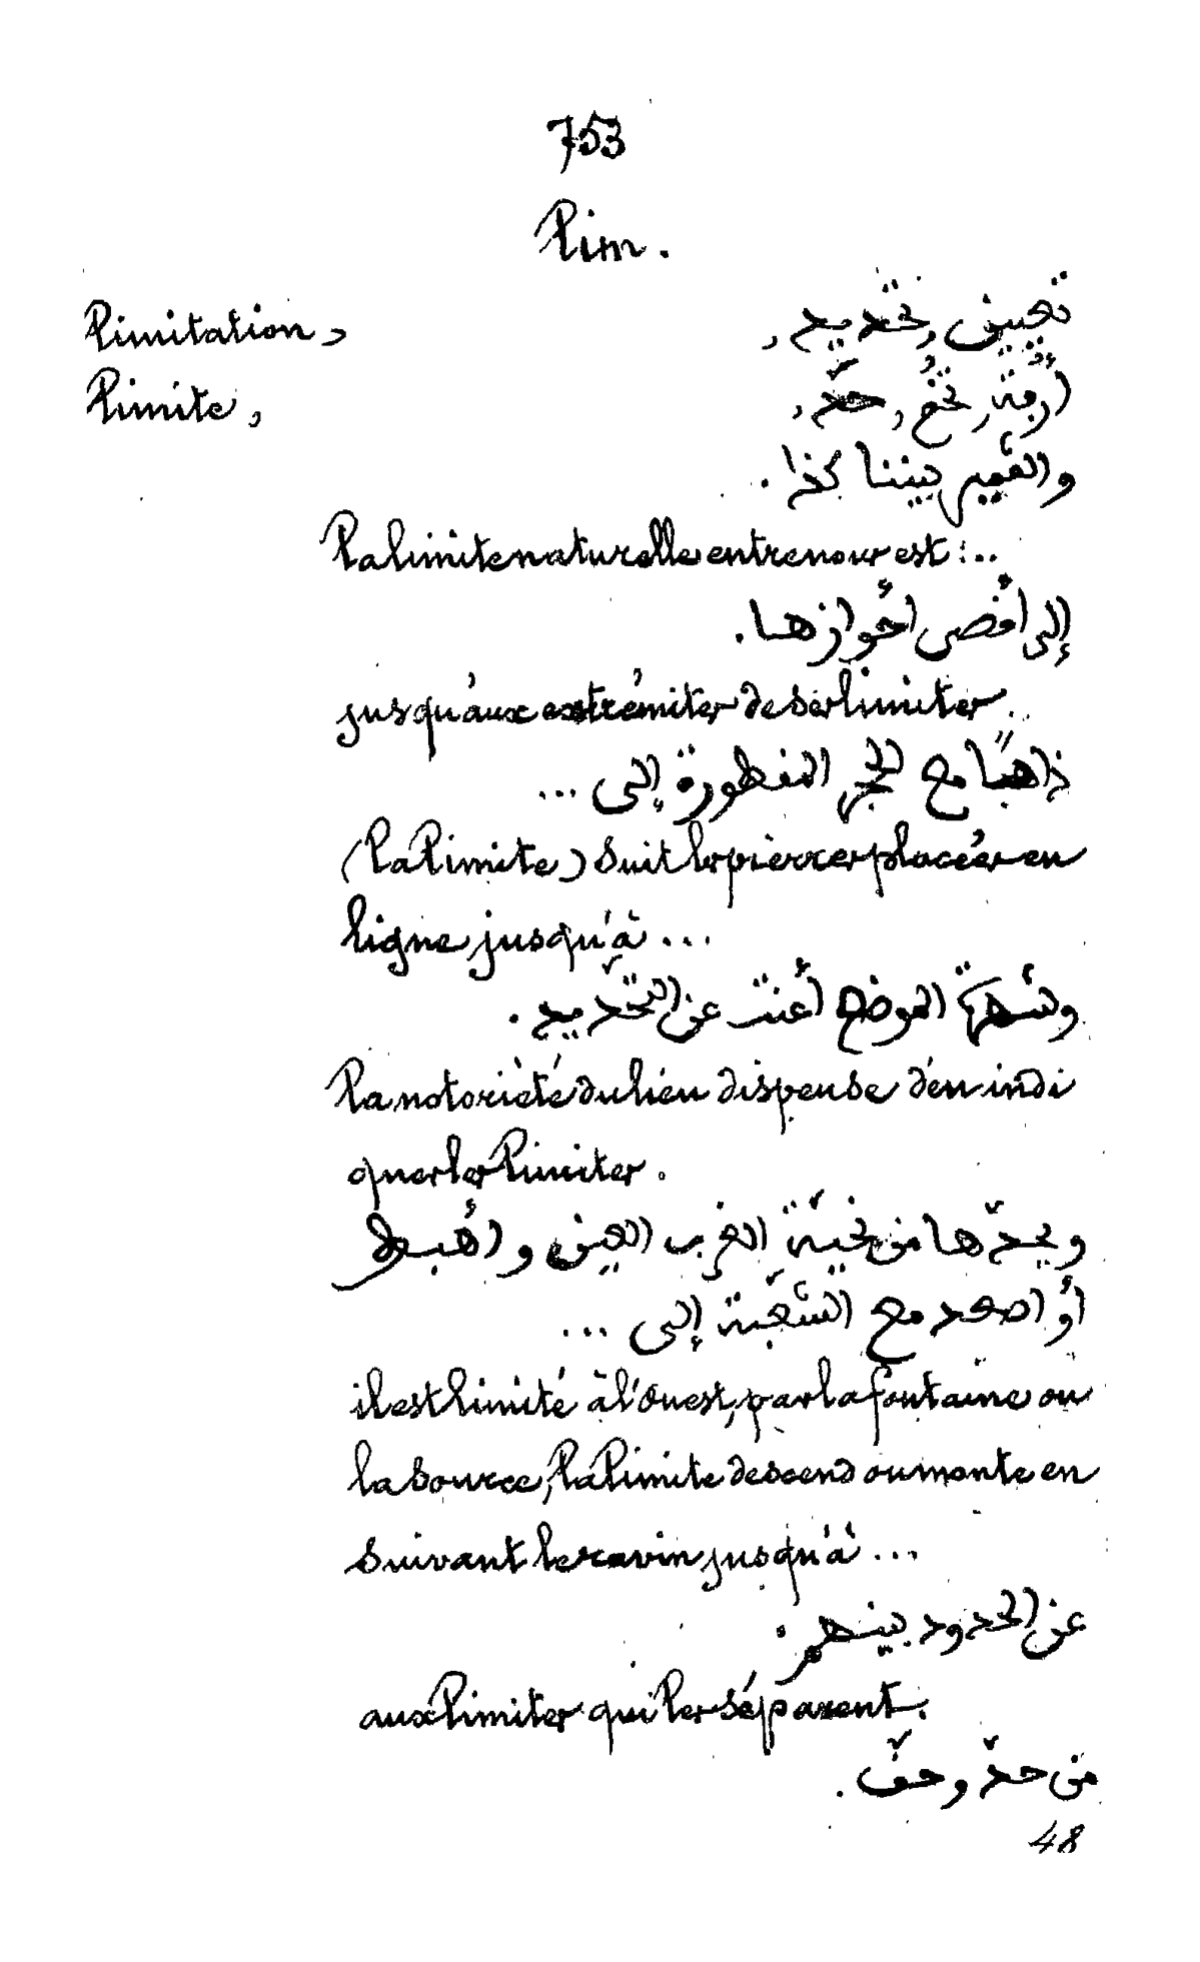 753
Lim.
Limitation, تعيين, تحديد,
Limite, أرفة, تخم, حدّ,
والقسيم بيننا كذا.
La limite naturelle entre nous est:..
إلى أقصى أحوازها.
jusqu'aux extrémités de ses limites.
ذاهبًا مع الحجر المقطورة إلى ...
(La Limite) suit les pierres placées en
ligne jusqu'à ...
وشهرة الموضع أغنت عن التحديد.
La notoriété du lieu dispense d'en indi
quer les Limites.
ويحدّها من نحيّة الغرب العين واهبط
أو اصعد مع الشعبة إلى ...
il est limité à l'Ouest, par la fontaine ou
la source, La Limite descend ou monte en
suivant le ravin jusqu'à ...
عن الحدود بينهم.
aux Limites qui les séparent.
من حدّ وحقّ.
48